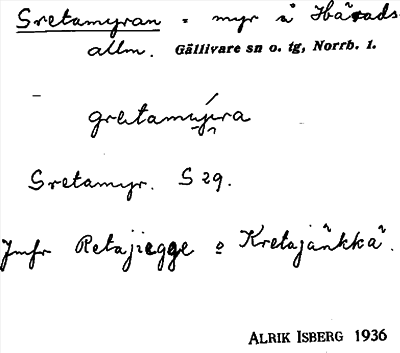 Sretamyran = myr å Härads-
allm. Gällivare sn o. tg, Norrb. l.
gretamyra
Sretamyr. S 29.
Jmfr Retajiegge o Kretajänkkä.
ALRIK ISBERG 1936